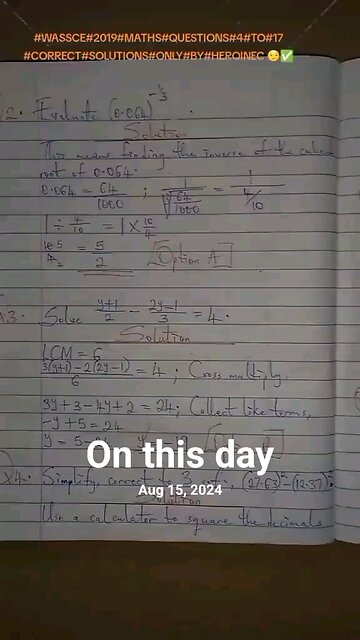 #WASSCE#2019#MATHS#QUESTIONS#4#TO#17
#CORRECT#SOLUTIONS#ONLY#BY#HEROINEC 😏✅
2. Evaluate (0.064)^-1/3.
Solution
This means finding the inverse of the cube
root of 0.064.
0.064 = 64/1000 ; 1/∛(64/1000) = 1/(4/10)
1 ÷ 4/10 = 1 × 10/4
10 5/4 2 = 5/2 Option A
3. Solve (y+1)/2 - (2y-1)/3 = 4.
Solution
LCM = 6
(3(y+1) - 2(2y-1))/6 = 4 ; Cross multiply.
3y + 3 - 4y + 2 = 24; Collect like terms,
-y + 5 = 24
y = 5 -
On this day
Aug 15, 2024
4. Simplify, correct to 3 (27.63)² - (12.37)²
Solution
Use a calculator to square the decimals